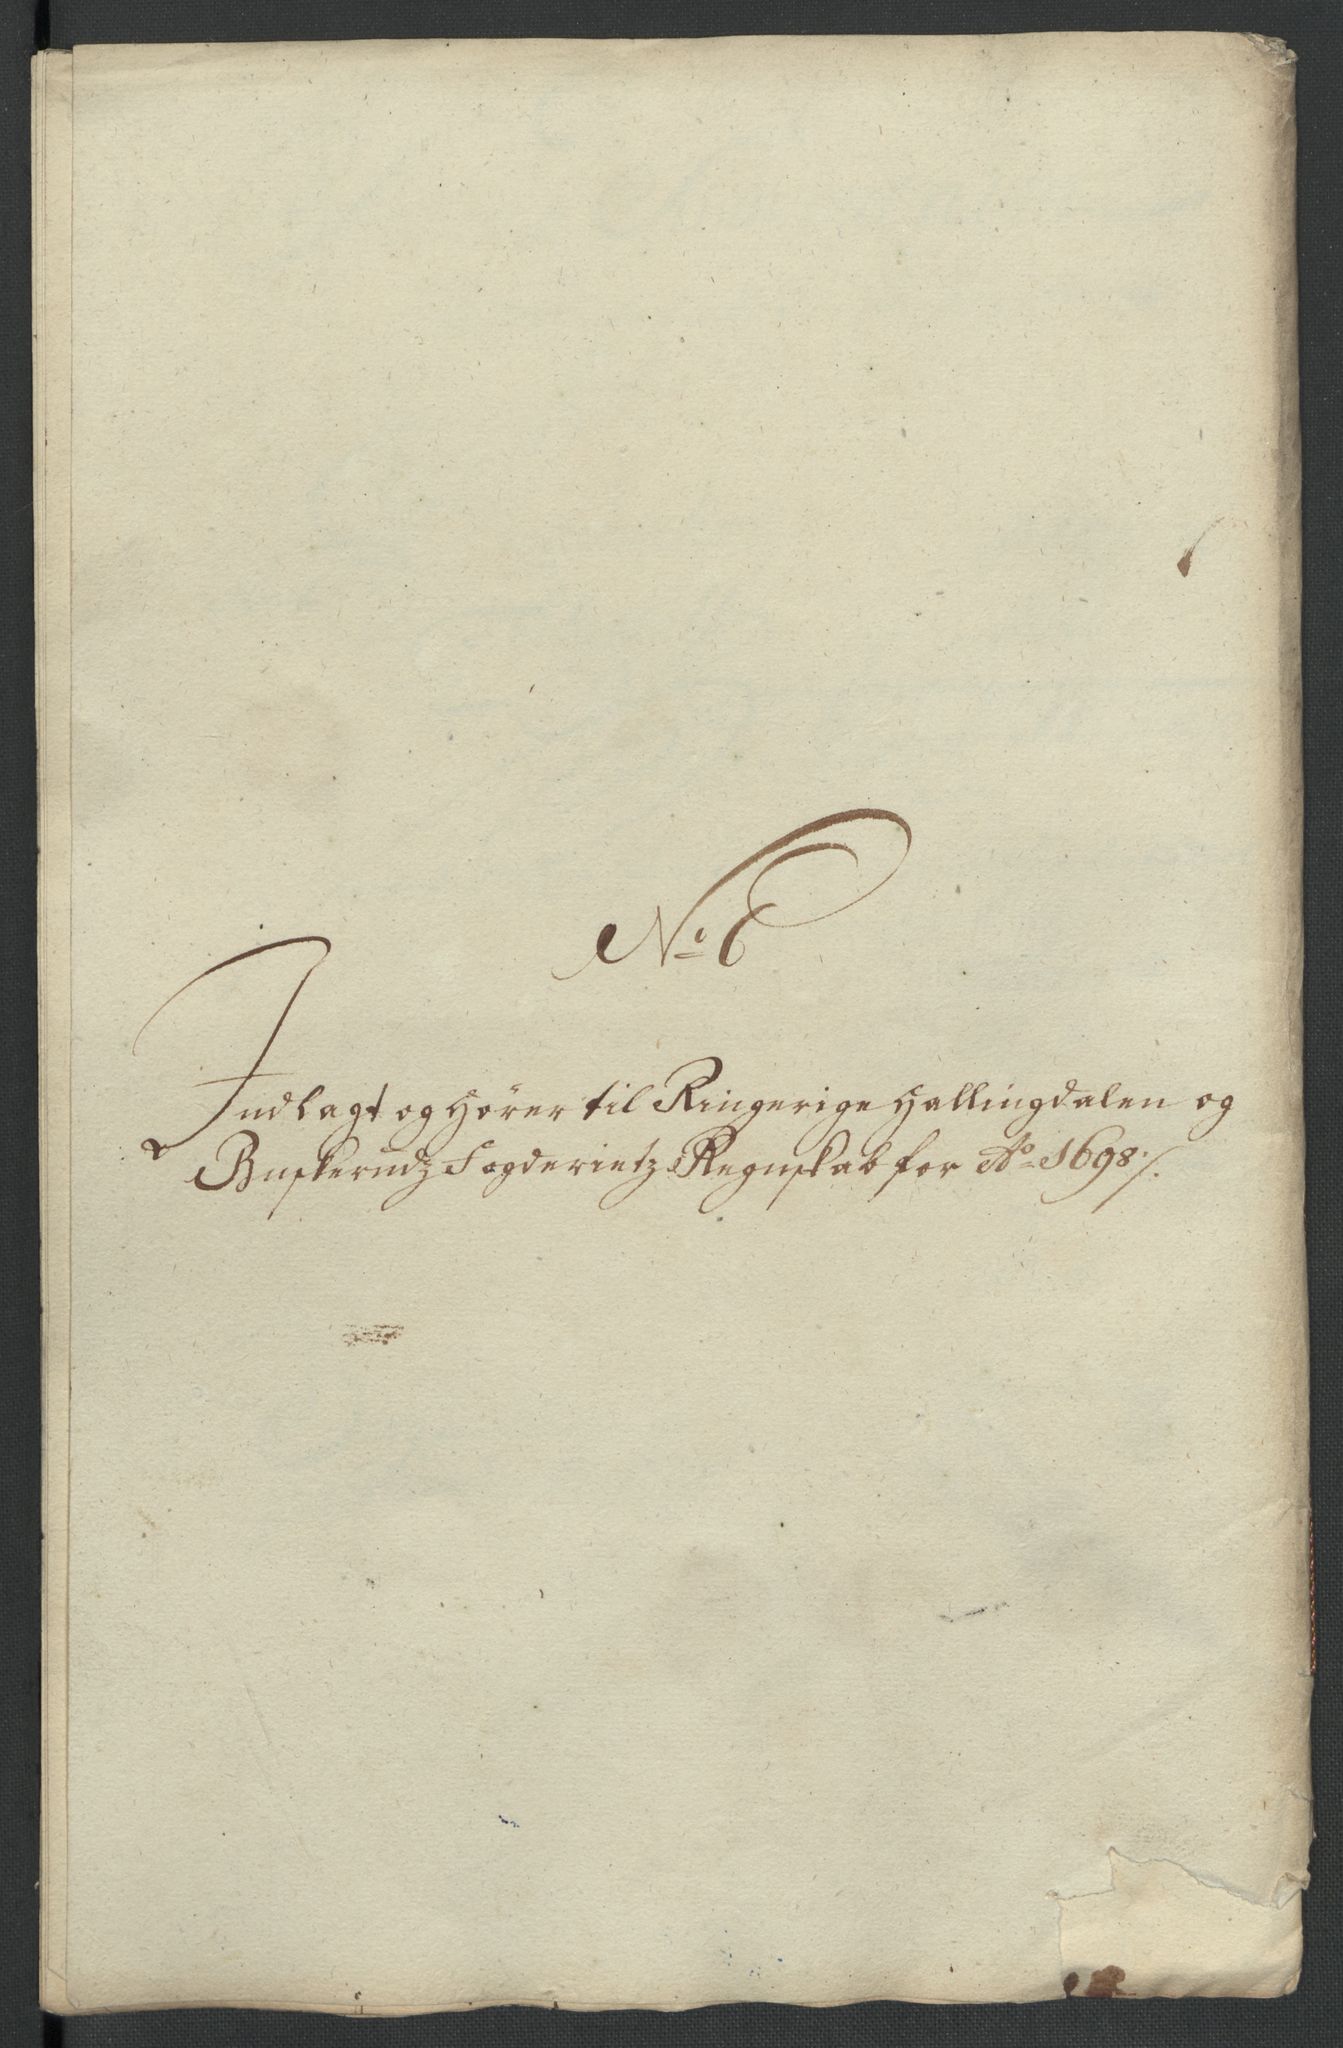 No 6
Indlagt og hörer til Ringerige Hallingdalen og
Buskerudz Fogderietz Regnskab for Ao 1698 ./.